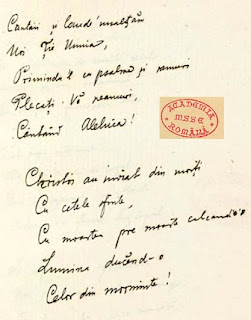 Cântări și laude înălțăm
Noi Ție Unuia,
cu psalme și ramuri
Plecați
Cântând Aleluia!
ACADEMIA
MSSE
ROMÂNĂ
Christos au inviat din morți
Cu cetele sfinte,
Cu moartea pre moarte calcand-o
Lumina ducend-o
Celor din morminte!